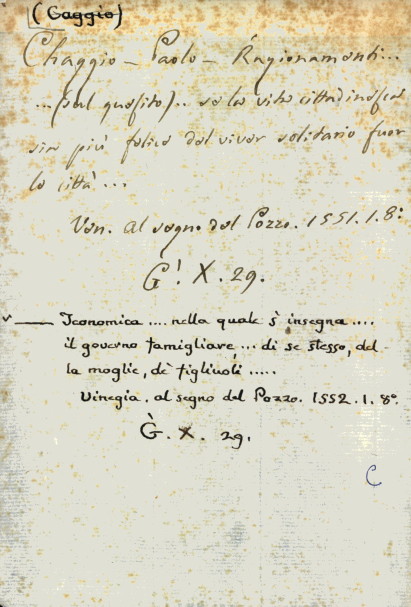 (Gaggio)
Chaggio - Paolo - Ragionamenti...
...(sul quesito).. se la vita cittadinesca
sia più felice del viver solitario fuor
le città...
Ven. al segno del Pozzo. 1551. 1. 8°
G! X. 29.
— Iconomica .... nella quale s'insegna ....
il governo famigliare ... di se stesso, del
la moglie, de' figliuoli .....
Vinegia. al segno del Pozzo. 1552. 1. 8°.
G. X. 29.
C